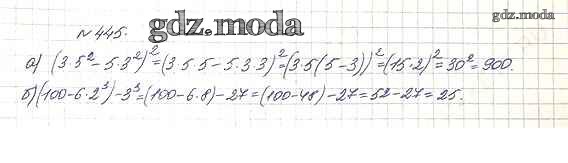 № 445. gdz.moda
gdz.moda
а) (3·5² – 5·3²)² = (3·5·5 – 5·3·3)² = (3·5(5–3))² = (15·2)² = 30² = 900.
б) (100–6·2³) – 3³ = (100–6·8) – 27 = (100–48) – 27 = 52 – 27 = 25.